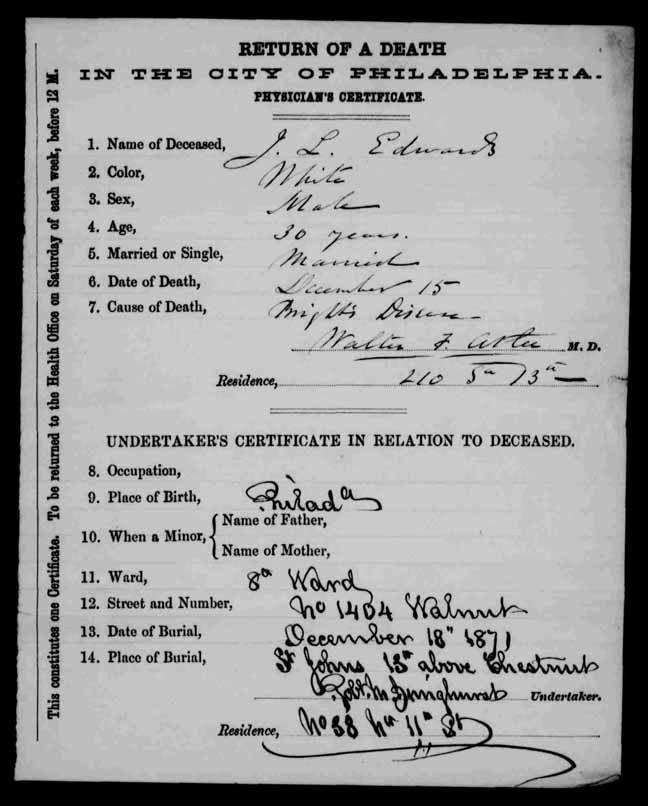 RETURN OF A DEATH
IN THE CITY OF PHILADELPHIA.
PHYSICIAN'S CERTIFICATE.
1. Name of Deceased, J. L. Edwards
2. Color, White
3. Sex, Male
4. Age, 30 years.
5. Married or Single, Married
6. Date of Death, December 15
7. Cause of Death, Bright's Disease
Walter F. Atlee M. D.
Residence, 210 So 13th
UNDERTAKER'S CERTIFICATE IN RELATION TO DECEASED.
8. Occupation,
9. Place of Birth, Philada
10. When a Minor, Name of Father,
Name of Mother,
11. Ward, 8th Ward
12. Street and Number, No 1404 Walnut
13. Date of Burial, December 18" 1871
14. Place of Burial, St Johns 13th above Chestnut
Robt. M Bringhurst Undertaker.
Residence, No 38 Nth 11th St
This constitutes one Certificate. To be returned to the Health Office on Saturday of each week, before 12 M.